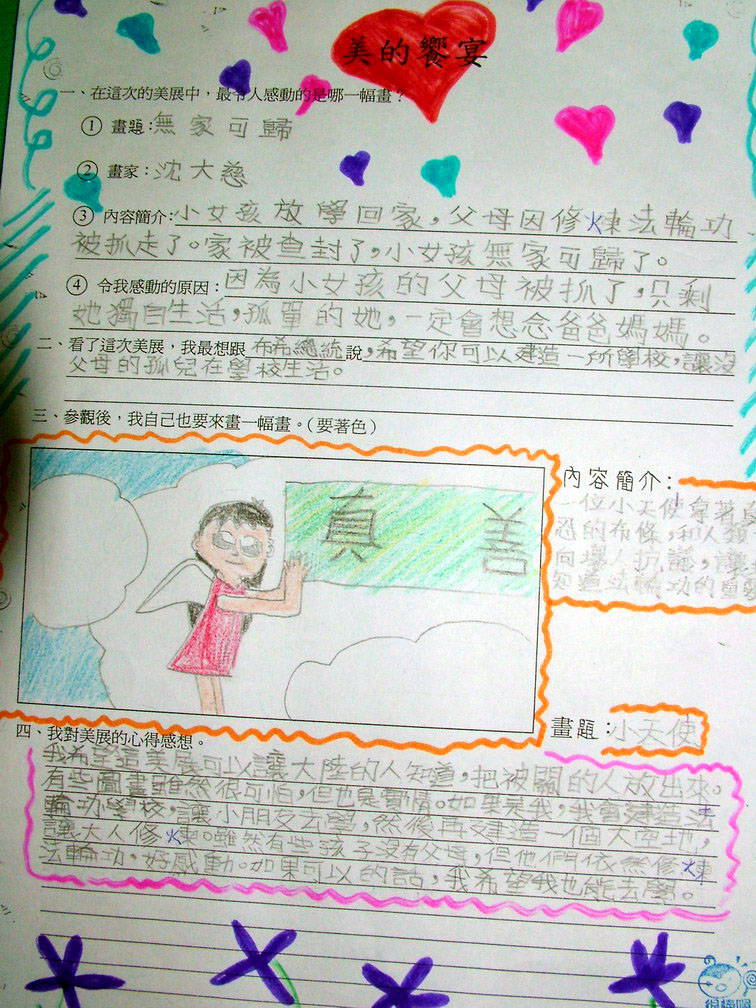 美的饗宴
一、在這次的美展中，最令人感動的是哪一幅畫？
① 畫題：無家可歸
② 畫家：沈大慈
③ 內容簡介：小女孩放學回家，父母因修煉法輪功
被抓走了。家被查封了，小女孩無家可歸了。
④ 令我感動的原因：因為小女孩的父母被抓了，只剩
她獨自生活，孤單的她，一定會想念爸爸媽媽。
二、看了這次美展，我最想跟布希總統說，希望你可以建造一所學校，讓沒
父母的孤兒在學校生活。
三、參觀後，我自己也要來畫一幅畫。（要著色）
真 善
內容簡介：
一位小天使拿著
忍的布條，和人類
向壞人抗議，讓
知道法輪功的
畫題：小天使
四、我對美展的心得感想。
我希望這美展可以讓大陸的人知道，把被關的人放出來。
有些圖畫雖然很可怕，但也是實情。如果是我，我會建造法
輪功學校，讓小朋友去學，然後再建造一個大空地，
讓大人修煉。雖然有些孩子沒有父母，但他們依然修煉
法輪功，好感動。如果可以的話，我希望我也能去學。